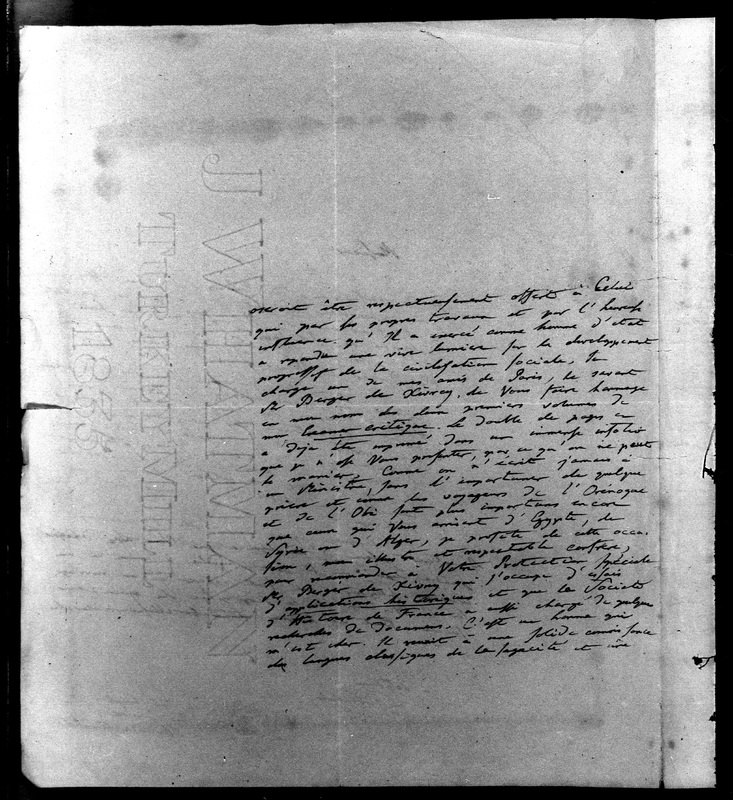 oseroit être respectueusement offert à Celui
qui par ses propres travaux et par l'heureuse
influence qu'Il a exercé comme homme d'état
a repandu une vive lumiere sur le developpement
progressif de la civilisation sociale, Je
charge un de mes amis de Paris, le savant
Mr Berger de Xivrey, de Vous faire hommage
en mon nom des deux premiers volumes de
mon Examen critique. Le double de pages en
a deja été imprimé dans un immense infolio
que je n'ose Vous presenter, parce qu'on ne peut
le manier. Comme on n'écrit jamais à
un Ministre, sans l'importuner de quelque
priere et comme les voyageurs de l'Orénoque
et de l'Obi sont plus importuns encore
que ceux qui Vous arrivent d'Egypte, de
Syrie ou d'Alger, je profite de cette occa-
sion, mon illustre et respectable confrère,
pour recommander à Votre Protection spéciale
Mr Berger de Xivrey qui s'occupe d'essais
d'applications historiques et que la Société
d'Histoire de France a aussi chargé de quelque
recherches de documens. C'est un homme qui
m'est cher. Il reunit à une solide connoissance
des langues classiques de la sagacité et une
J WHATMAN
TURKEY MILL
1835